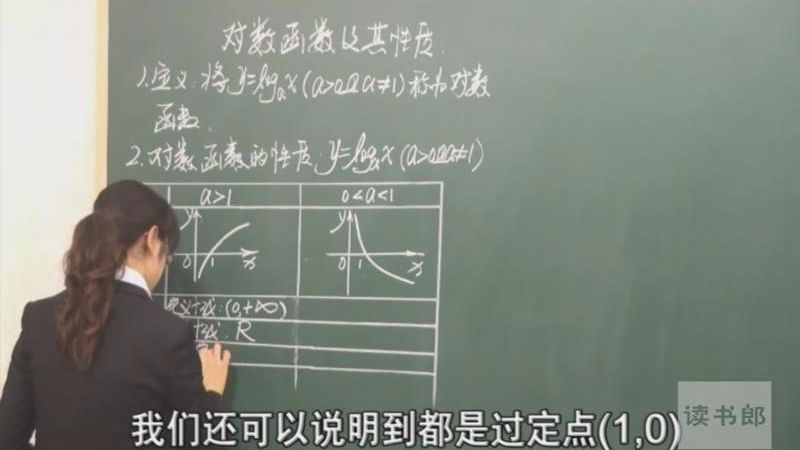 对数函数及其性质.
1.定义:将y=logₐx(a>0且a≠1)称为对数
函数.
2.对数函数的性质:y=logₐx(a>0且a≠1)
a>1
0<a<1
y
0 1 x
y
0 1 x
定义域:(0,+∞)
域:R
我们还可以说明到都是过定点(1,0)
读书郎